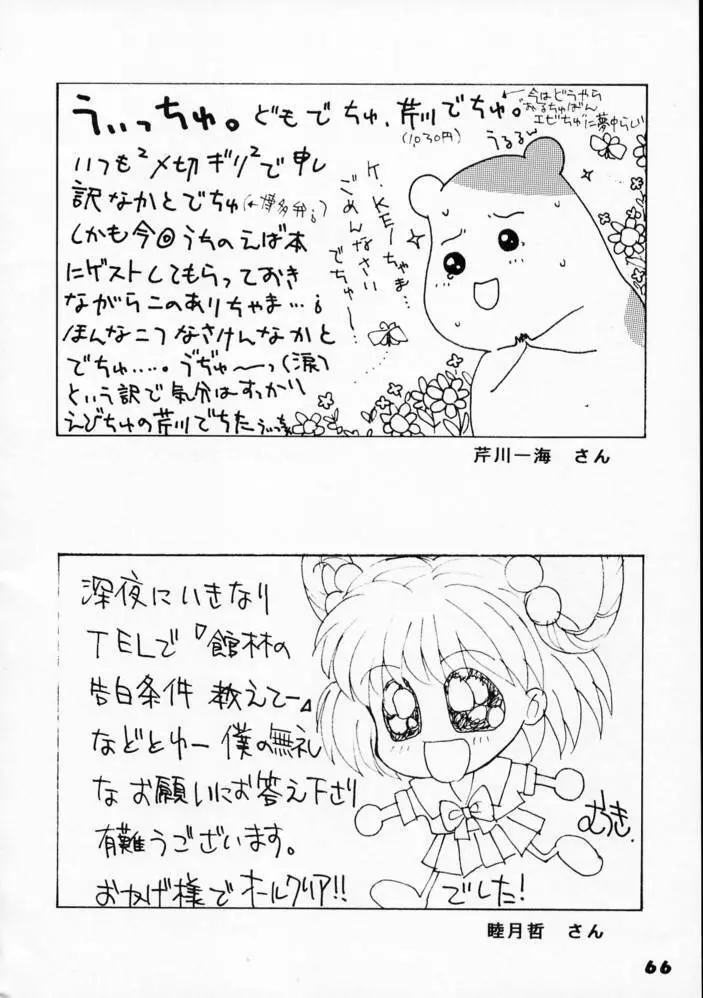 うぃっちゅ。どもでちゅ、芹川でちゅ。
(1030円)
←今はどうやら
あるちゅばん
エビちゅに夢中らしい
うるるっ
いつも²〆切ギリ²で申し
訳なかとでちゅ(←博多弁。)
しかも今回うちのえば本
にゲストしてもらっておき
ながらこのありちゃま…。
ほんなこつなさけんなかと
でちゅ……。ゔぢゅ〜っ(涙)
という訳で気分はすっかり
えびちゅの芹川でちた
K.KEIちゃま…
ごめんなさい
でちゅ〜…
芹川一海 さん
深夜にいきなり
TELで『館林の
告白条件 教えてー』
などとゆー僕の無礼
なお願いにお答え下さり
有難うございます。
おかげ様でオールクリア!!
でした!
むつき.
睦月哲 さん
66